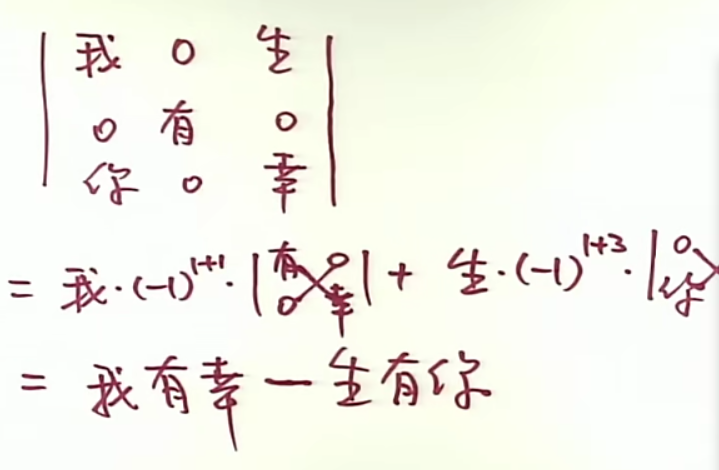 | 我 0 生 |
| 0 有 0 |
| 你 0 幸 |
= 我·(-1)^{1+1}·| 有 0 |
| 0 幸 | + 生·(-1)^{1+3}·| 0
你
= 我有幸一生有你